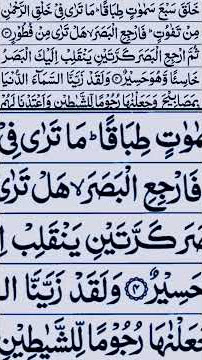 خَلَقَ سَبْعَ سَمٰوٰتٍ طِبَاقًا ؕ مَا تَرٰى فِیْ خَلْقِ الرَّحْمٰنِ
مِنْ تَفٰوُتٍ ؕ فَارْجِعِ الْبَصَرَ ۙ هَلْ تَرٰى مِنْ فُطُوْرٍ ﴿۳﴾
ثُمَّ ارْجِعِ الْبَصَرَ كَرَّتَیْنِ یَنْقَلِبْ اِلَیْكَ الْبَصَرُ
خَاسِئًا وَّهُوَ حَسِیْرٌ ﴿۴﴾ وَلَقَدْ زَیَّنَّا السَّمَآءَ الدُّنْیَا
بِمَصَابِیْحَ وَجَعَلْنٰهَا رُجُوْمًا لِّلشَّیٰطِیْنِ وَاَعْتَدْنَا لَهُمْ
مٰوٰتٍ طِبَاقًا ؕ مَا تَرٰى فِیْ
فَارْجِعِ الْبَصَرَ ۙ هَلْ تَرٰى
صَرَ كَرَّتَیْنِ یَنْقَلِبْ اِ
حَسِیْرٌ ﴿۴﴾ وَلَقَدْ زَیَّنَّا ال
جَعَلْنٰهَا رُجُوْمًا لِّلشَّیٰطِیْنِ